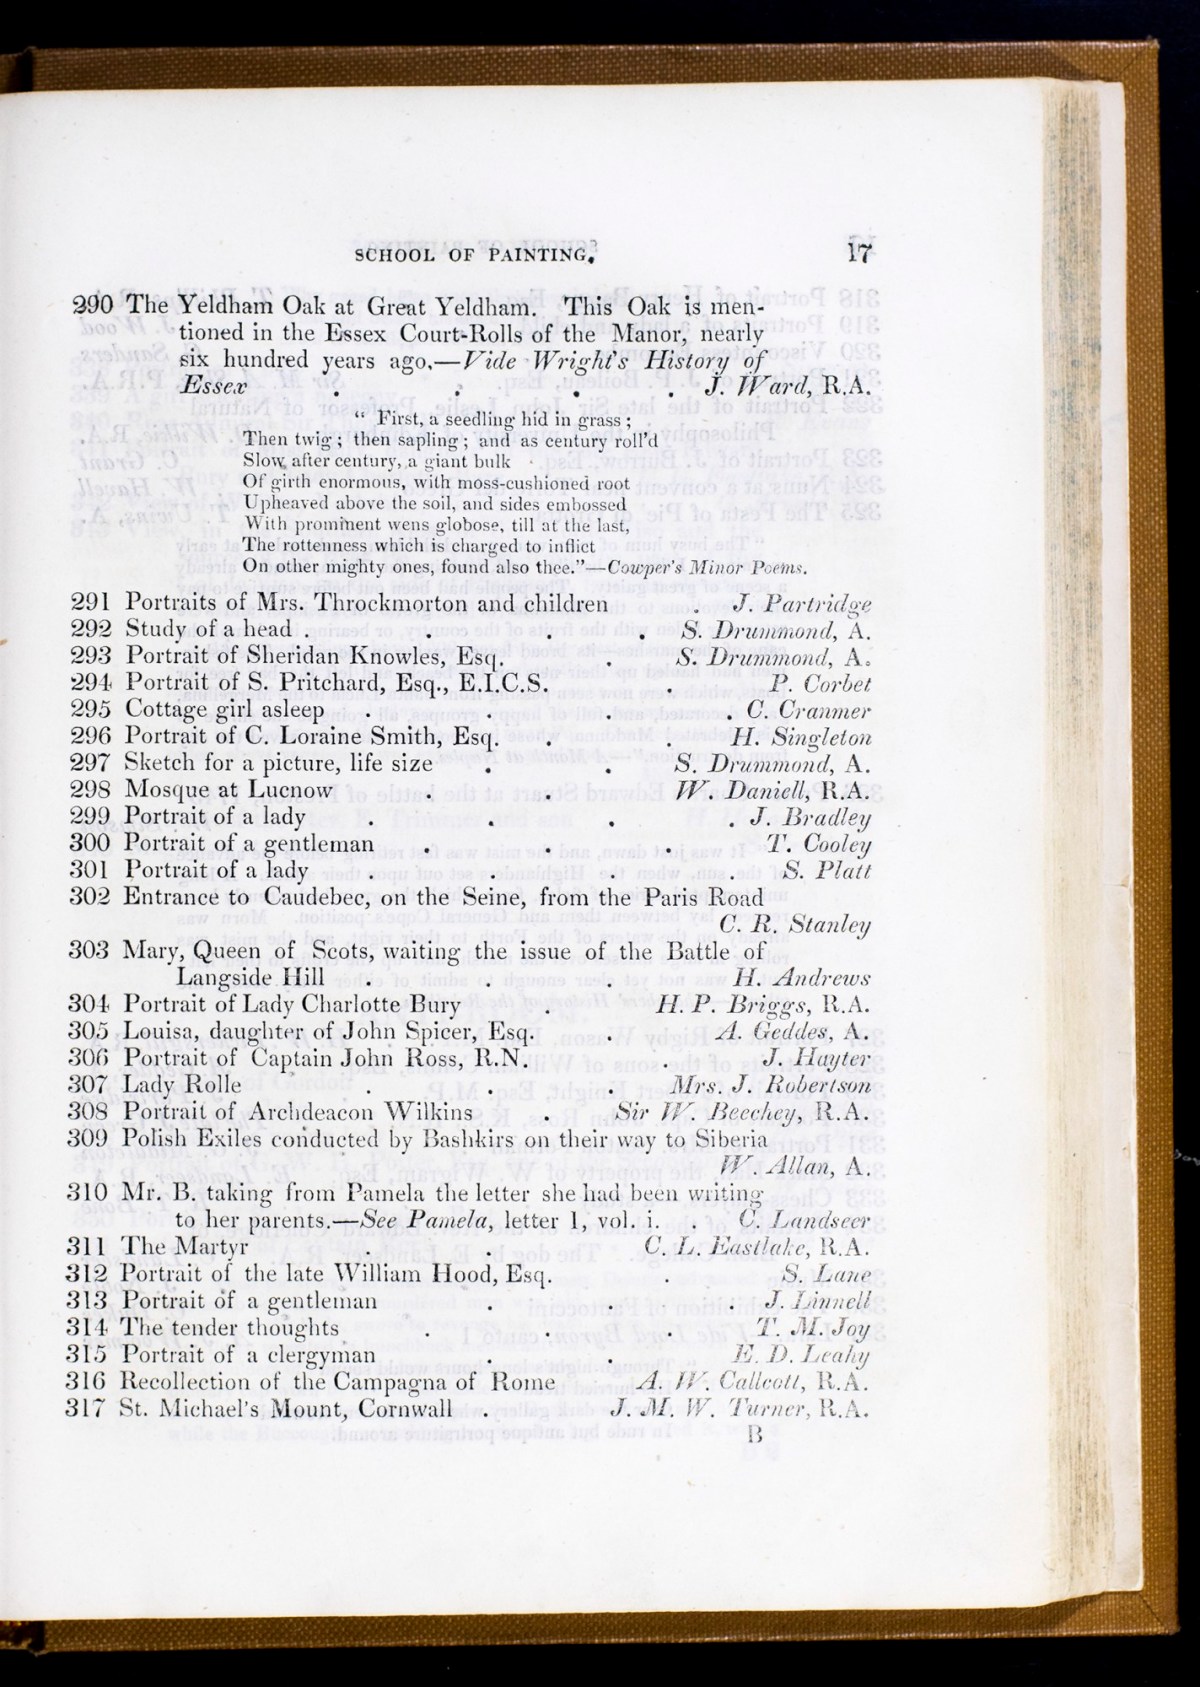 SCHOOL OF PAINTING. 17
290 The Yeldham Oak at Great Yeldham. This Oak is men-
tioned in the Essex Court-Rolls of the Manor, nearly
six hundred years ago.—Vide Wright's History of
Essex . . . . J. Ward, R.A.
“ First, a seedling hid in grass ;
Then twig ; then sapling ; and as century roll'd
Slow after century, a giant bulk
Of girth enormous, with moss-cushioned root
Upheaved above the soil, and sides embossed
With prominent wens globose, till at the last,
The rottenness which is charged to inflict
On other mighty ones, found also thee.”—Cowper's Minor Poems.
291 Portraits of Mrs. Throckmorton and children . J. Partridge
292 Study of a head . . . . S. Drummond, A.
293 Portrait of Sheridan Knowles, Esq. . S. Drummond, A.
294 Portrait of S. Pritchard, Esq., E.I.C.S. . P. Corbet
295 Cottage girl asleep . . . . C. Cranmer
296 Portrait of C. Loraine Smith, Esq. . . H. Singleton
297 Sketch for a picture, life size . . S. Drummond, A.
298 Mosque at Lucnow . . W. Daniell, R.A.
299 Portrait of a lady . . . . J. Bradley
300 Portrait of a gentleman . . . T. Cooley
301 Portrait of a lady . . . . S. Platt
302 Entrance to Caudebec, on the Seine, from the Paris Road
C. R. Stanley
303 Mary, Queen of Scots, waiting the issue of the Battle of
Langside Hill . . . H. Andrews
304 Portrait of Lady Charlotte Bury . H. P. Briggs, R.A.
305 Louisa, daughter of John Spicer, Esq. . A. Geddes, A.
306 Portrait of Captain John Ross, R.N. . J. Hayter
307 Lady Rolle . . . Mrs. J. Robertson
308 Portrait of Archdeacon Wilkins . Sir W. Beechey, R.A.
309 Polish Exiles conducted by Bashkirs on their way to Siberia
W. Allan, A.
310 Mr. B. taking from Pamela the letter she had been writing
to her parents.—See Pamela, letter 1, vol. i. . C. Landseer
311 The Martyr . . C. L. Eastlake, R.A.
312 Portrait of the late William Hood, Esq. . S. Lane
313 Portrait of a gentleman . . . J. Linnell
314 The tender thoughts . . . T. M. Joy
315 Portrait of a clergyman . . E. D. Leahy
316 Recollection of the Campagna of Rome A. W. Callcott, R.A.
317 St. Michael's Mount, Cornwall . J. M. W. Turner, R.A.
B